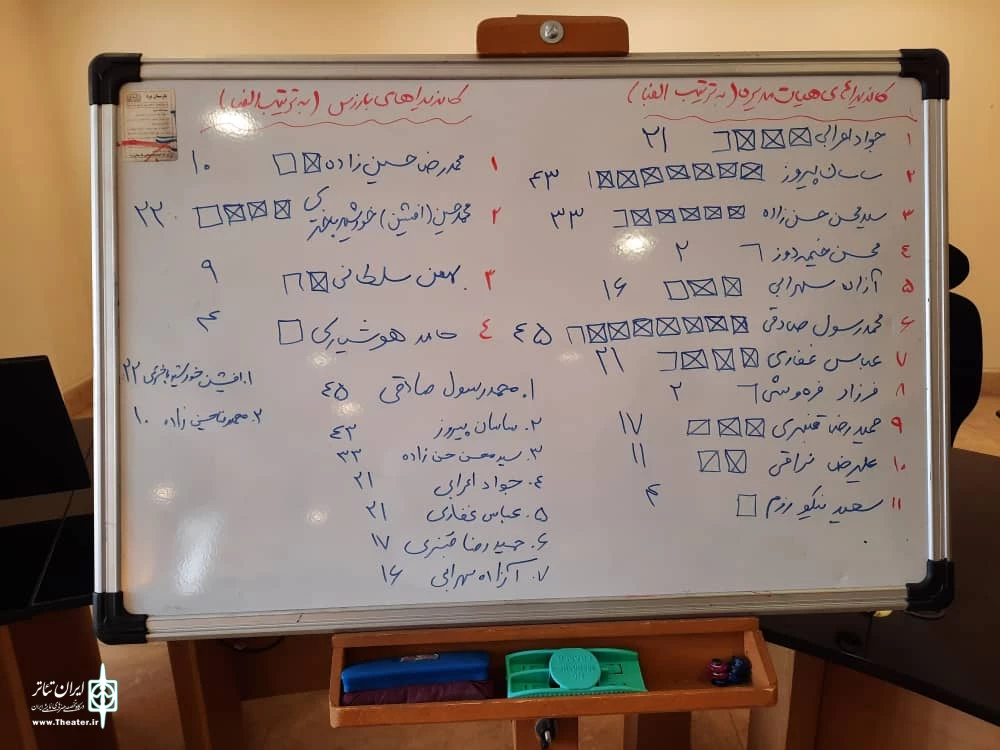 کاندیداهای هیات مدیره (به ترتیب الفبا)
۱ جواد اعرابی ۲۱
۲ ساسان پیروز ۴۳
۳ سید محسن حسن زاده ۳۳
۴ محسن خیمه دوز ۲
۵ آزاده سهرابی ۱۶
۶ محمدرسول صادقی ۴۵
۷ عباس غفاری ۲۱
۸ فرزاد فره وشی ۲
۹ حمیدرضا قنبری ۱۷
۱۰ علیرضا نراقی ۱۱
۱۱ سعید نیکورزم ۴
کاندیداهای بازرس (به ترتیب الفبا)
۱ محمدرضا حسین زاده ۱۰
۲ محمدحسین (افشین) خورشیدباختری ۲۲
۳ بهمن سلطانی ۹
۴ حامد هوشیاری ۴
۱. محمدرسول صادقی ۴۵
۲. ساسان پیروز ۴۳
۳. سید محسن حسن زاده ۳۳
۴. جواد اعرابی ۲۱
۵. عباس غفاری ۲۱
۶. حمیدرضا قنبری ۱۷
۷. آزاده سهرابی ۱۶
۱. افشین خورشیدباختری ۲۲
۲. محمدرضا حسین زاده ۱۰
ایران تئاتر
www.Theater.ir